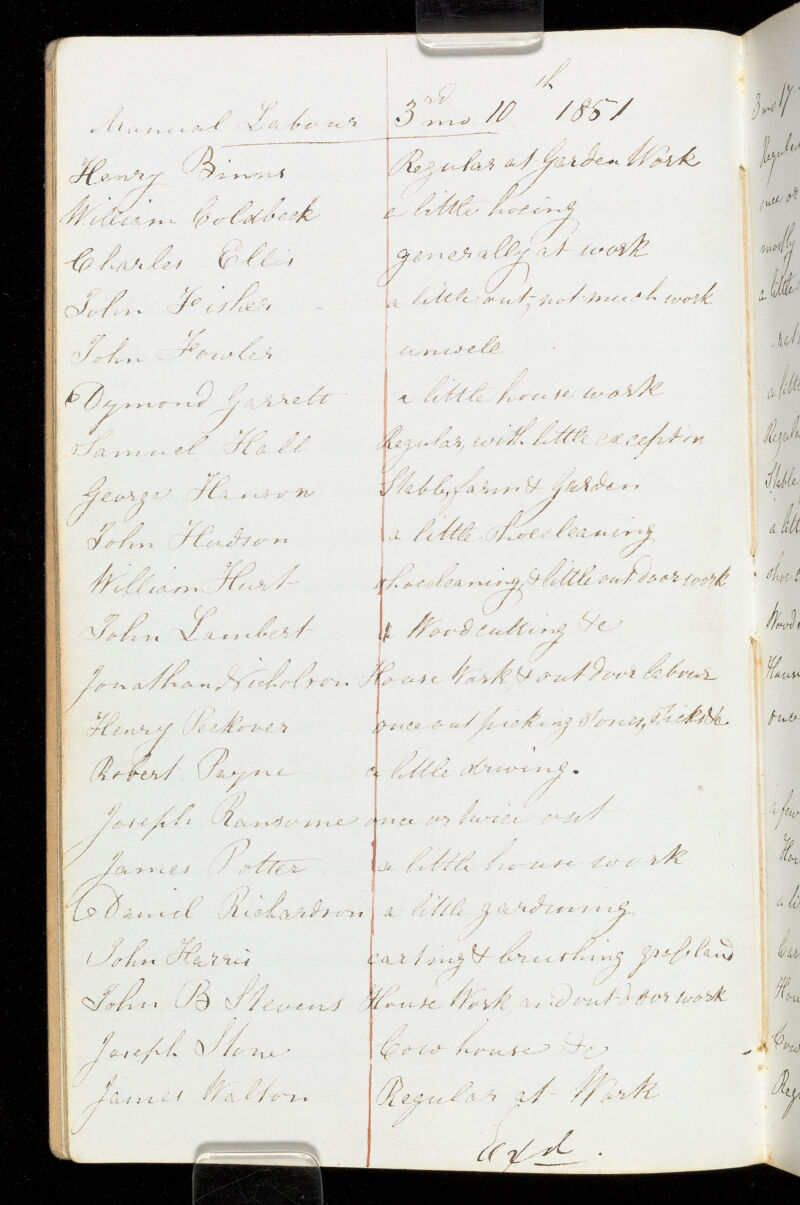 Manual Labour 3rd mo 10th 1851
Henry Binns Regular at Garden Work
William Coldbeck a little hoeing
Charles Ellis generally at work
John Fisher a little out, not much work
John Fowler unwell
Dymond Garrett a little house work
Samuel Hall Regular, with little exception
George Hanson Stable, farm & Garden
John Hodson a little shoecleaning
William Hurt shoecleaning & little out door work
John Lambert Woodcutting &c
Jonathan Nicholson House Work & out door labour
Henry Peckover once out picking stones, sticks &c
Robert Payne a little driving.
Joseph Ransome once or twice out
James Potter a little house work
Daniel Richardson a little gardening
John Harris carting & brushing grassland
John B Stevens House Work and out door work
Joseph Stone Cow house &c
James Walton Regular at Work
Exd.
3 mo 17
Regular
once or
mostly
a little
a little
Regular
Stable
a litt
shoe c
Wood
House
once
a few
Hou
a li
Car
Hou
Cow
Reg